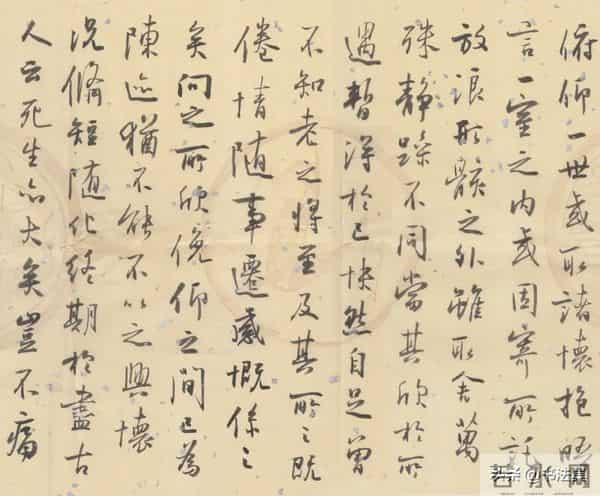 俯仰一世或取諸懷抱晤
言一室之内或因寄所託
放浪形骸之外雖取舍萬
殊静躁不同當其欣於所
遇暫得於己快然自足曾
不知老之將至及其所之既
倦情随事遷感慨係之
矣向之所欣俛仰之間已為
陳迹猶不能不以之興懷
況脩短随化終期於盡古
人云死生亦大矣豈不痛
头条